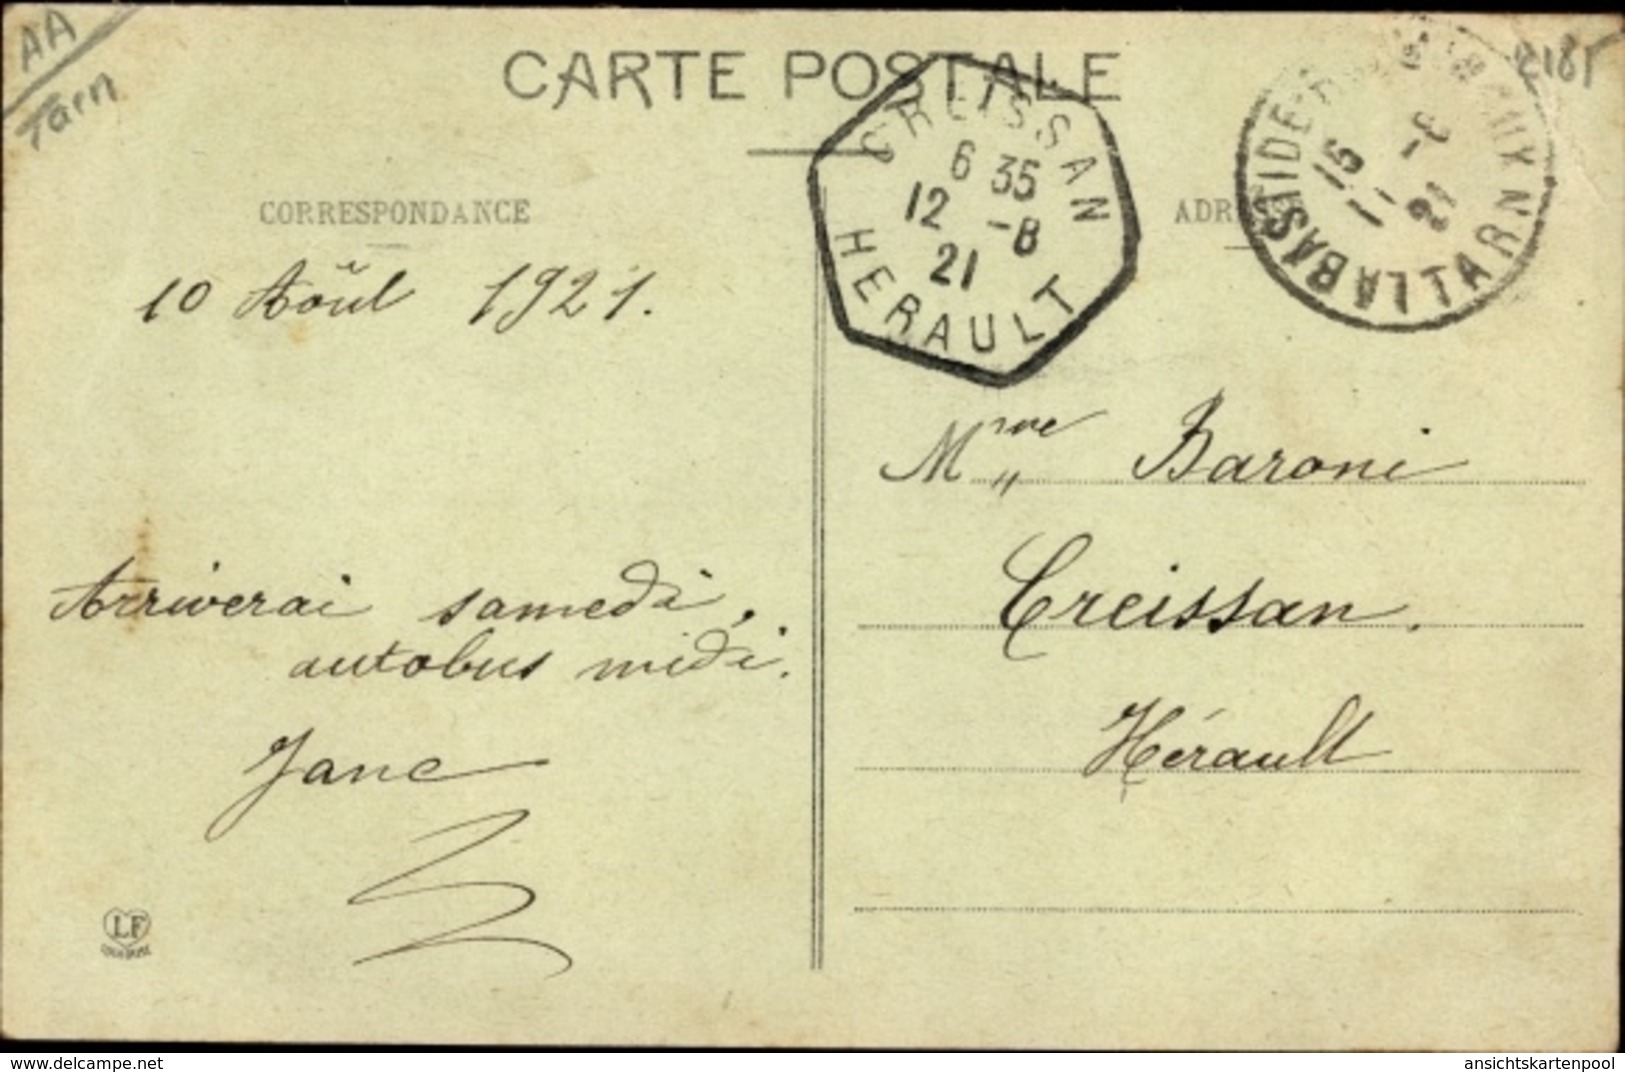 AA
Tarn
2185
CARTE POSTALE
CREISSAN
6 35
12 -8
21
HERAULT
15
11 -8
21
LABASTIDE
TARN
CORRESPONDANCE
10 Août 1921.
Mme Baroni
Arriverai samedi,
autobus midi.
Creissan.
Jane
Hérault
LF
delcampe.net
ansichtskartenpool